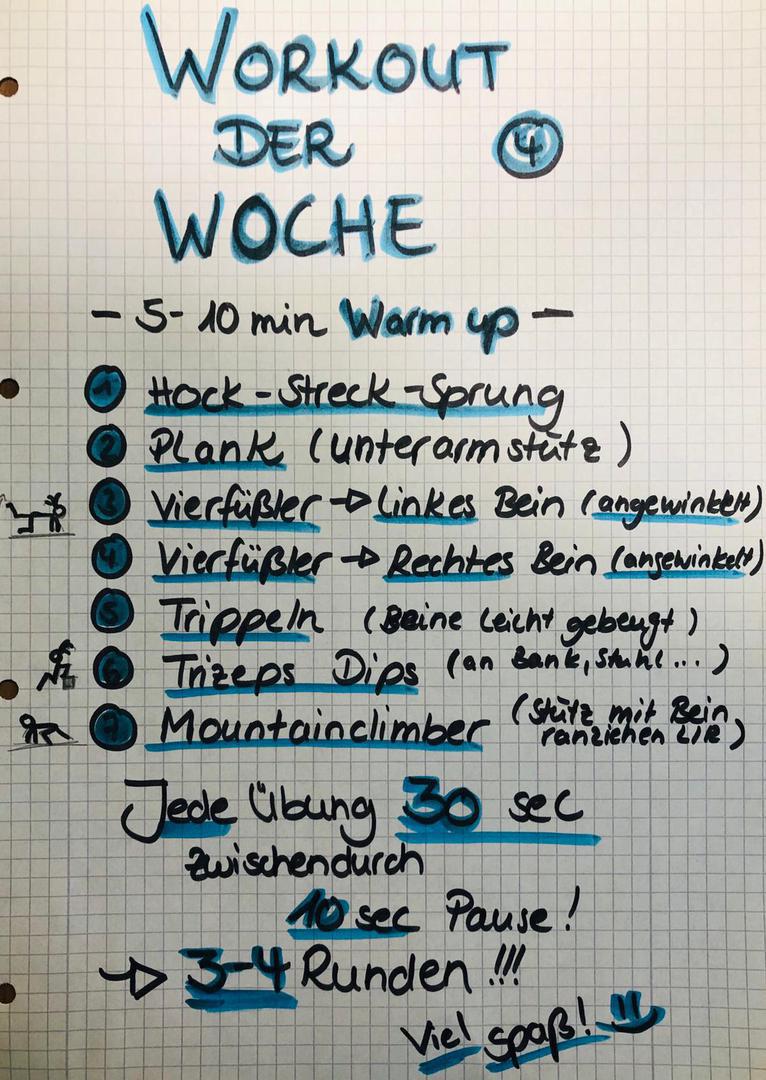 WORKOUT
DER 4
WOCHE
- 5-10 min Warm up -
1 Hock-Streck-Sprung
2 Plank (Unterarmstütz)
3 Vierfüßler → Linkes Bein (angewinkelt)
4 Vierfüßler → Rechtes Bein (angewinkelt)
5 Trippeln (Beine leicht gebeugt)
6 Trizeps Dips (an Bank, Stuhl...)
7 Mountainclimber (Stütz mit Bein
ranziehen L/R)
Jede Übung 30 sec
zwischendurch
10 sec Pause!
→ 3-4 Runden!!!
Viel Spaß!